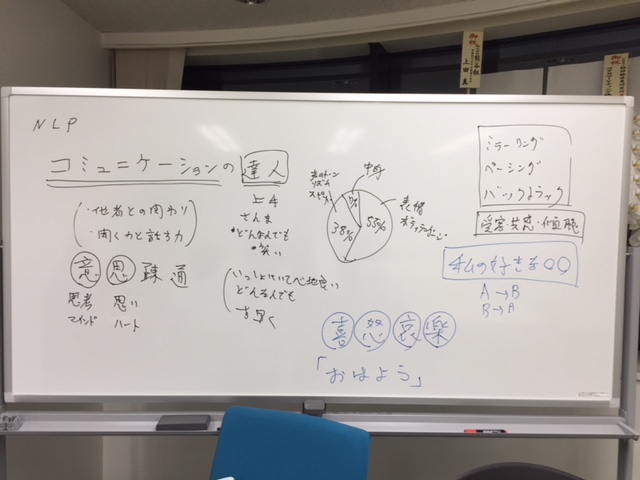 NLP
コミュニケーションの 達人
・他者との関わり
・聞く力と話す力
意思疎通
思考 思い
マインド ハート
上手
さんま
・どんなんでも
・笑い
いっしょにいて心地良い
どんなんでも
素早く
声のトーン
リズム
スピード
中身
7%
38%
55%
表情
ボディランゲージ
ミラーリング
ペーシング
バックトラック
受容・共感・
私の好きな〇〇
A→B
B→A
喜怒哀楽
「おはよう」
御祝
上田
御祝